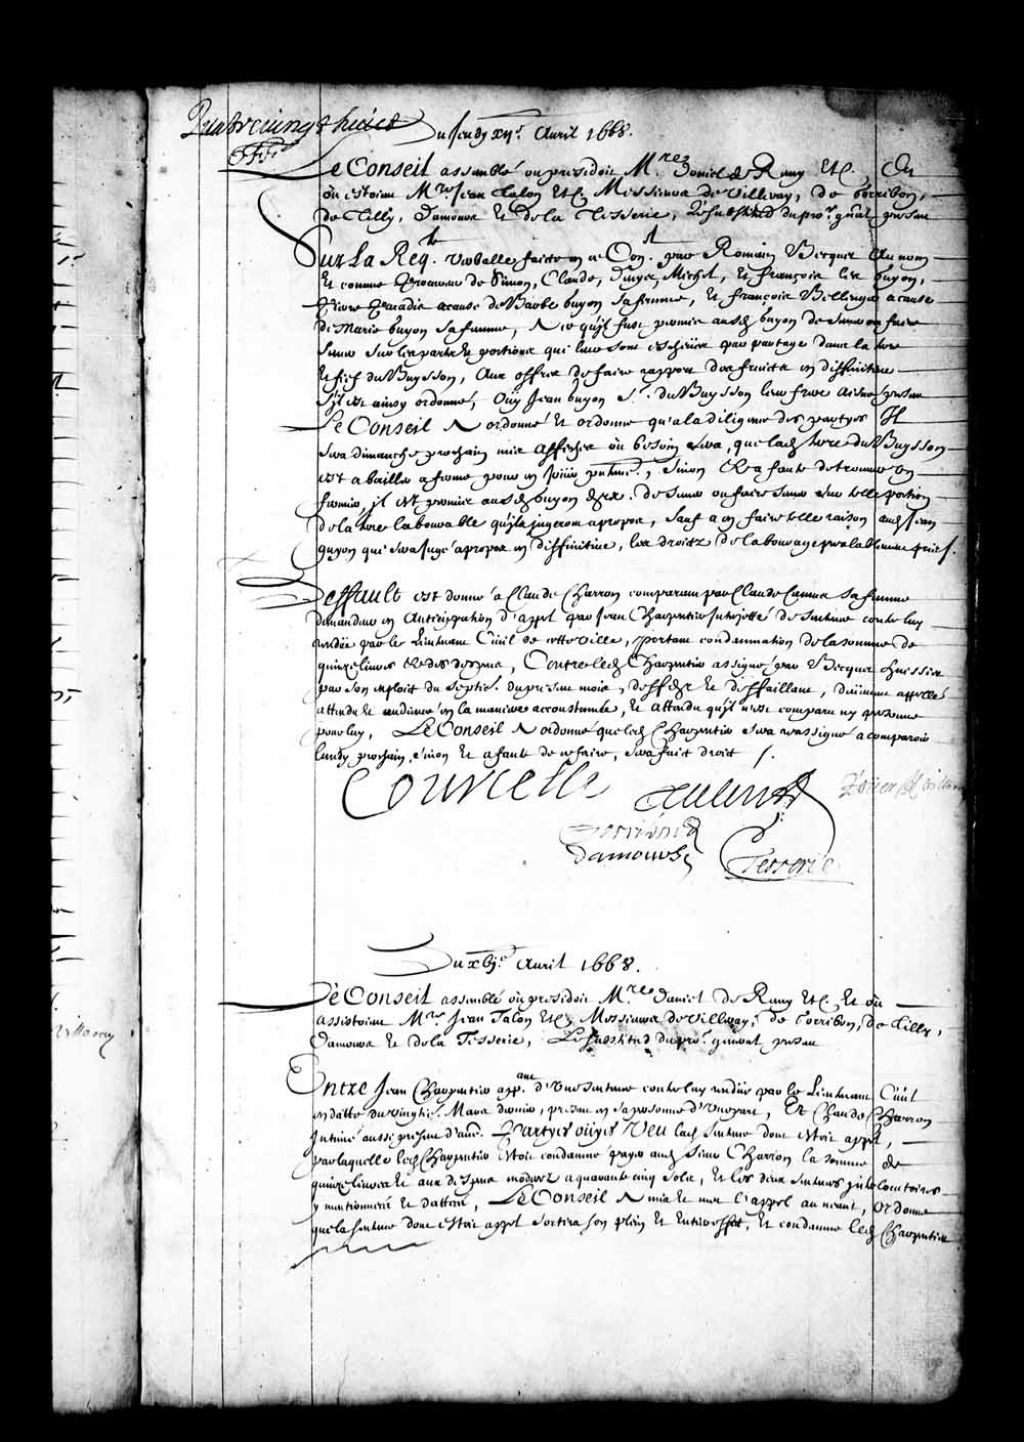 Quatrevingt huict
Du Jeudy xije. Avril 1668.
Le Conseil assemblé ou presidoit Mre. Daniel de Remy Etc. Et
ou estoient Mre. Jean Talon Etc. Messieurs de Villeray, de Gorribon,
de Tilly, Damours Et de la Tesserie, Le substitud du pror. gnal. presen
Sur La Reqte. verballe faicte en ce Conl. par Romain Becquet Au nom
Et comme Procureur de Simon, Claude, Michel, Et François les Guyon,
Pierre Paradis a cause de Barbe Guyon sa femme, Et François Bellenger a cause
de Marie Guyon sa femme, A ce qu'il fust permis ausd Guyon de semer ou faire
semer sur les partz Et portions qui leur sont escheües par partage dans la terre
Et fief du Buysson, Aux offres de faire rapport des fruicts en diffinitive
s'il est ainsy ordonné, Oüy Jean Guyon Sr. du Buysson leur frere aisné presen
Le Conseil A ordonné Et ordonne qu'a la diligence des partyes Il
sera dimanche prochain mis Affiches ou besoin sera, que lad terre du Buysson
est a bailler a ferme pour en Jouir , Sinon Et a faute de trouver Un
fermier, il est permis ausd Guyon de semer ou faire semer sur telle portion
de la terre labourable qu'ils jugeront a propos, sauf a en faire telle raison aud Jean
Guyon qui sera Jugé a propos en diffinitive, les droictz de labourage prealablement pris /.
Deffault est donné a Claude Charron comparant par Claude Camus sa femme
demandeur en Anticipation d'appel par Jean Charpentier Interjetté de sentence contre luy
rendüe par le Lieutenant Civil de cette ville, portant condamnation de la somme de
quinze livres Et des despens, Contre led Charpentier assigné par Becquet huissier
par son exploit du septie. du present mois, deffdr Et deffaillant, düement appellé
attendu Et audiencé en la maniere accoustumée, Et attendu qu'il n'est comparu ny personne
pour luy, Le Conseil A ordonné que led Charpentier sera reassigné a comparoir
lundy prochain, sinon Et a faute de ce faire, sera faict droict /.
Courcelle Talon
Gorribon
Damours Tesserie
Du xbje. Avril 1668.
Le Conseil assemblé ou presidoit Mre. Daniel de Remy Etc. Et ou
assistoient Mre. Jean Talon Etc. Messieurs de Villeray, de Gorribon, de Tilly,
Damours Et de la Tesserie, Le substitud du pror. general presen
Entre Jean Charpentier appant. d'Une sentence contre luy rendüe par le Lieutenant Civil
en datte du vingtie. Mars dernier, presen en sa personne d'Une part, Et Claude Charron
Intimé aussi present d'aue. Partyes oüyes Veu lad sentence dont estoit appel,
par laquelle led Charpentier estoit condamné payer aud sieur Charron la somme de
quinze livres Et aux despens moderez a quarante cinq solz, Et les deux sentences Interlocutoires
y mentionnées Et dattées, Le Conseil A mis Et met l'appel au neant, Ordonne
que la sentence dont estoit appel sortira son plein Et Entier effect, Et condamne led Charpentier